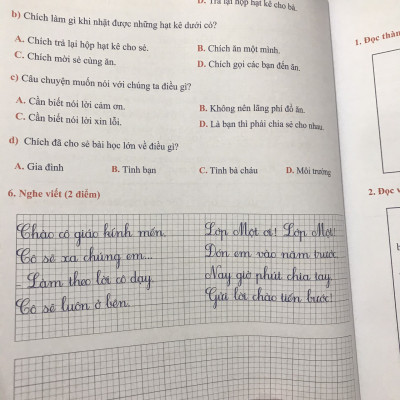 D. Trả lại hộp hạt kê cho bà.
b) Chích làm gì khi nhặt được những hạt kê dưới cỏ?
A. Chích trả lại hộp hạt kê cho sẻ.
B. Chích ăn một mình.
C. Chích mời sẻ cùng ăn.
D. Chích gọi các bạn đến ăn.
c) Câu chuyện muốn nói với chúng ta điều gì?
A. Cần biết nói lời cảm ơn.
B. Không nên lãng phí đồ ăn.
C. Cần biết nói lời xin lỗi.
D. Là bạn thì phải chia sẻ cho nhau.
d) Chích đã cho sẻ bài học lớn về điều gì?
A. Gia đình
B. Tình bạn
C. Tình bà cháu
D. Môi trường
6. Nghe viết (2 điểm)
Chào cô giáo kính mến.
Cô sẽ xa chúng em...
- Làm theo lời cô dạy.
Cô sẽ luôn ở bên.
Lớp Một ơi! Lớp Một!
Đón em vào năm trước.
Nay giờ phút chia tay
Gửi lời chào tiến bước!
1. Đọc
2. Đọc